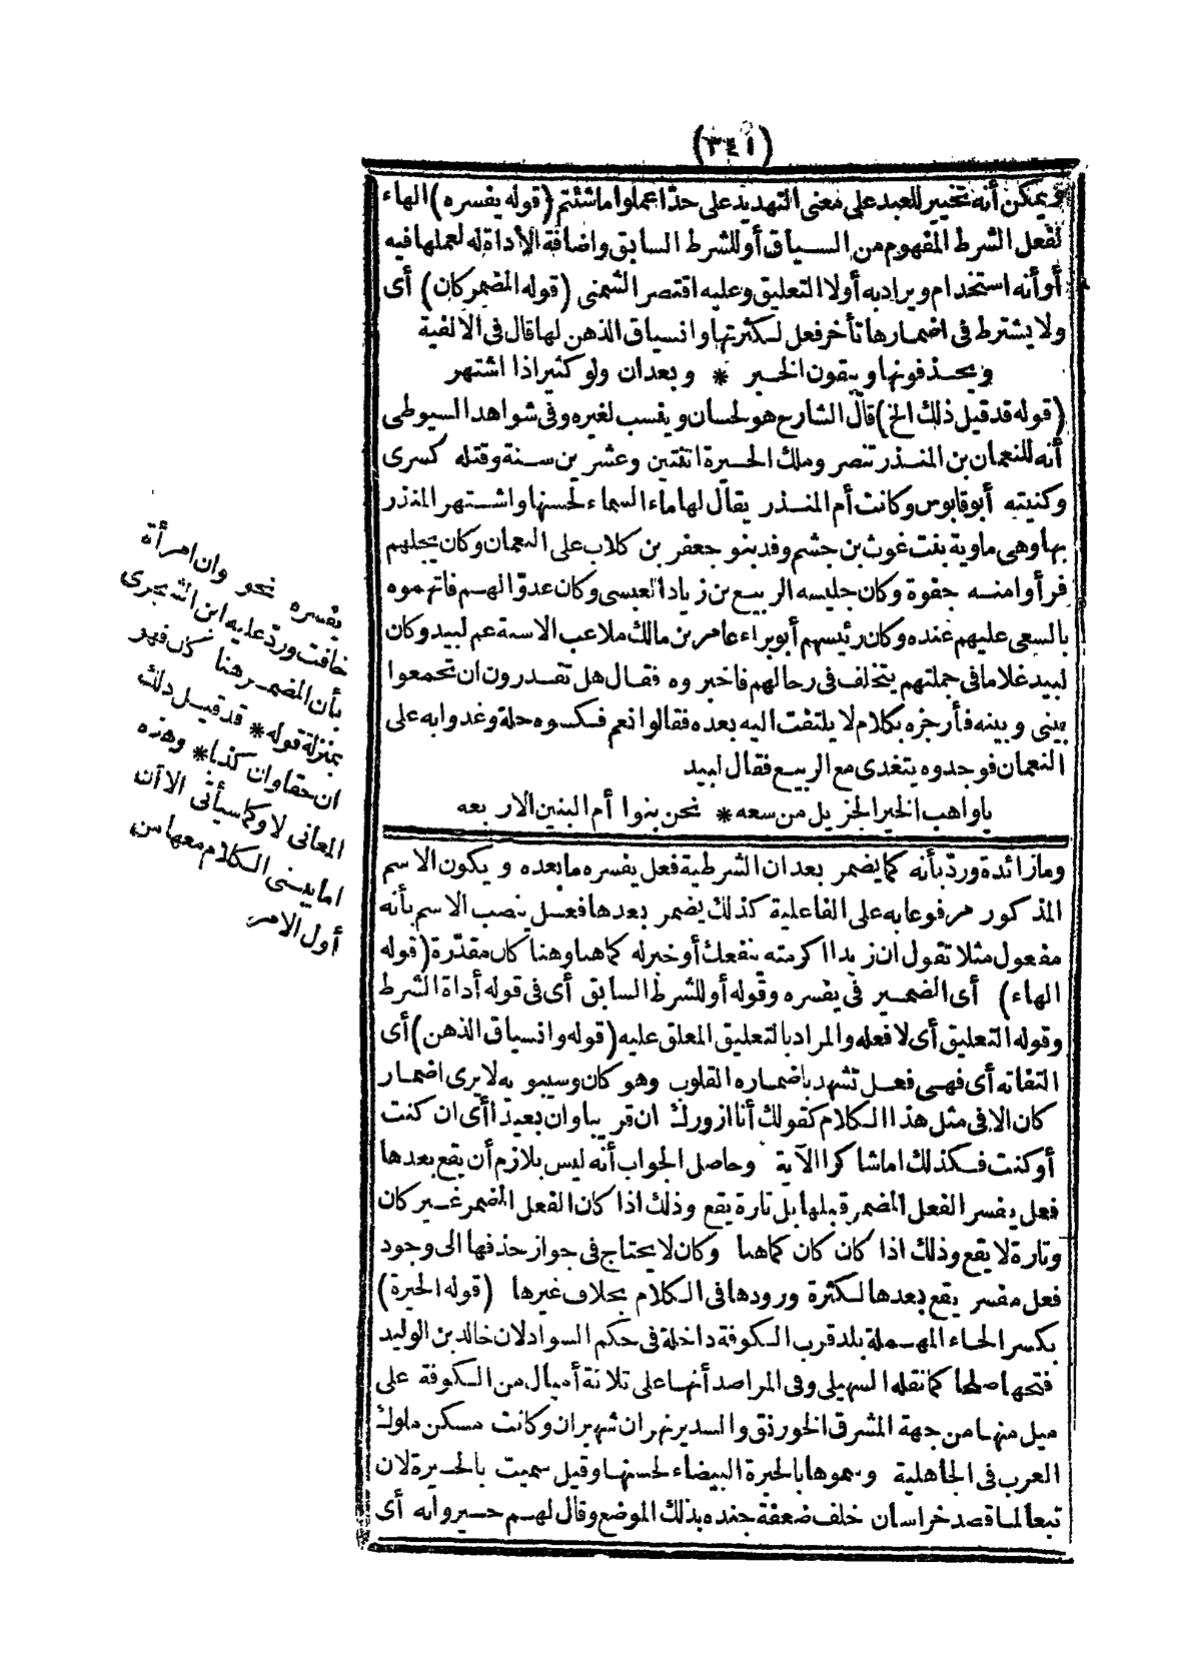 (٣٤١)
ويمكن أنه تخيير للعبد على معنى التهديد على حد اعملوا ما شئتم (قوله يفسره) الهاء
لفعل الشرط المفهوم من السياق أو للشرط السابق واضافة الأداة له لعملها فيه
أو أنه استخدام ويراد به أولا التعليق وعليه اقتصر الشمنى (قوله المضمر كان) أى
ولا يشترط فى اضمارها تأخر فعل لكثرتها وانسياق الذهن لها قال فى الالفية
ويحذفونها ويبقون الخبر * وبعد ان ولو كثيرا ذا اشتهر
(قوله قد قيل ذلك الخ) قال الشارح هو لحسان وينسب لغيره وفى شواهد السيوطى
أنه للنعمان بن المنذر تنصر وملك الحيرة اثنتين وعشرين سنة وقتله كسرى
وكنيته أبو قابوس وكانت أم المنذر يقال لها ماء السماء لحسنها واشتهر المنذر
بها وهى ماوية بنت غوث بن جشم وفد بنو جعفر بن كلاب على النعمان وكان يجلهم
فرأوا منه جفوة وكان جليسه الربيع بن زياد العبسى وكان عدوّا لهم فاتهموه
بالسعى عليهم عنده وكان رئيسهم أبو براء عامر بن مالك ملاعب الاسنة عم لبيد وكان
لبيد غلاما فى جملتهم يتخلف فى رحالهم فاخبروه فقال هل تقدرون ان تجمعوا
بينى وبينه فأرجزه بكلام لا يلتفت اليه بعده فقالوا نعم فكسوه حلة وغدوا به على
النعمان فوجدوه يتغدى مع الربيع فقال لبيد
يا واهب الخير الجزيل من سعه * نحن بنوا أم البنين الاربعه
يفسره نحو وان امرأة
خافت وردّ عليه ابن الشجرى
بأن المضمر هنا كان فهو
بمنزلة قوله * قد قيل ذلك
ان حقا وان كذبا * وهذه
المعانى لاو كما سيأتى الا أن
اما يبنى الكلام معها من
أول الامر
وما زائدة وردّ بأنه كما يضمر بعد ان الشرطية فعل يفسره ما بعده ويكون الاسم
المذكور مرفوعا به على الفاعلية كذلك يضمر بعدها فعل ينصب الاسم بأنه
مفعول مثلا تقول ان زيدا اكرمته ينفعك أو خبر له كما هنا وهنا كان مقدّرة (قوله
الهاء) أى الضمير فى يفسره وقوله أو للشرط السابق أى فى قوله أداة الشرط
وقوله التعليق أى لا فعله والمراد بالتعليق المعلق عليه (قوله وانسياق الذهن) أى
التفاته أى فهى فعل تشهد باضماره القلوب وهو كان وسيبويه لا يرى اضمار
كان الا فى مثل هذا الكلام كقولك أنا ازورك ان قريبا وان بعيدا أى ان كنت
أو كنت فكذلك اما شاكرا الآية وحاصل الجواب أنه ليس بلازم أن يقع بعدها
فعل يفسر الفعل المضمر قبلها بل تارة يقع وذلك اذا كان الفعل المضمر غير كان
وتارة لا يقع وذلك اذا كان كان كما هنا وكان لا يحتاج فى جواز حذفها الى وجود
فعل مفسر يقع بعدها لكثرة ورودها فى الكلام بخلاف غيرها (قوله الحيرة)
بكسر الحاء المهملة بلد قرب الكوفة داخلة فى حكم السواد لان خالد بن الوليد
فتحها صلحا كما نقله السهيلى وفى المراصد أنها على ثلاثة أميال من الكوفة على
ميل منها من جهة المشرق الخورنق والسدير نهران شهيران وكانت مسكن ملوك
العرب فى الجاهلية وسموها بالحيرة البيضاء لحسنها وقيل سميت بالحيرة لان
تبعا لما قصد خراسان خلف ضعفة جنده بذلك الموضع وقال لهم حيروا به أى